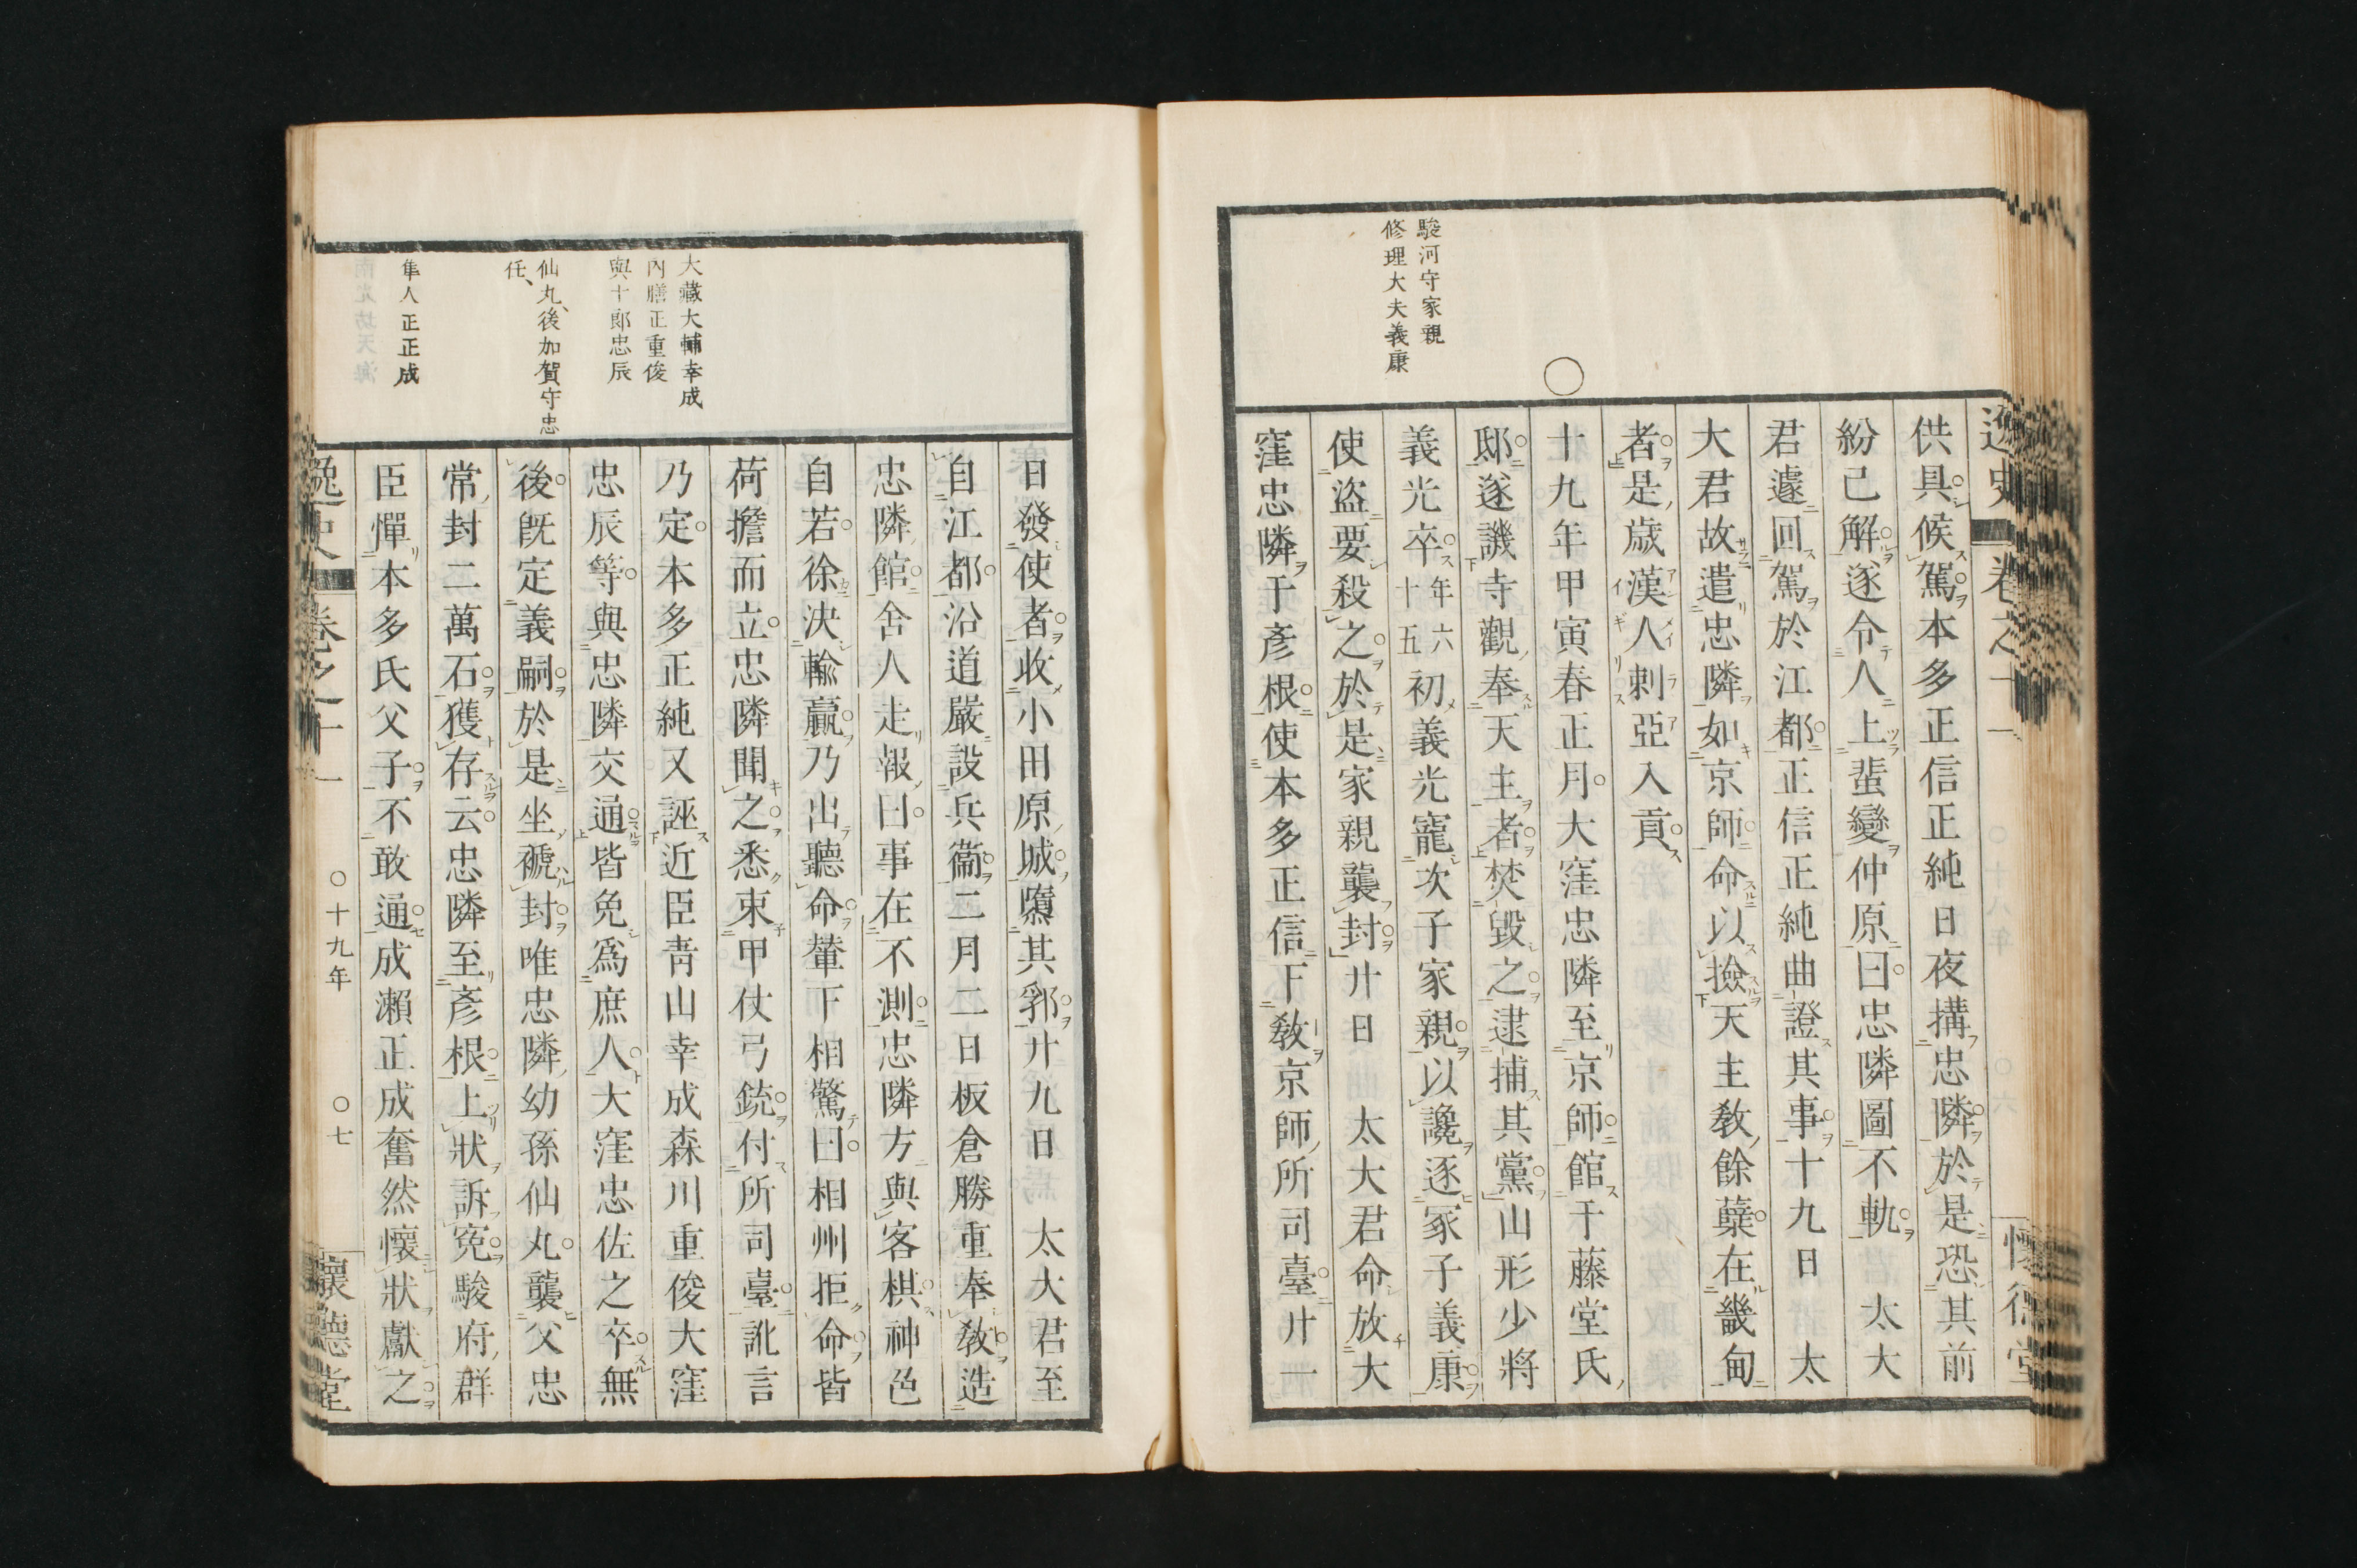 駿河守家親
修理大夫義康
逸史 卷之十一 懷德堂
供具候駕本多正信正純日夜搆忠隣於是恐其前
紛已解遂令人上蜚變仲原曰忠隣圖不軌 太大
君遽回駕於江都正信正純曲證其事十九日 太
大君故遣忠隣如京師命以撿天主敎餘蘖在畿甸
者是歲漢人刺亞入貢
十九年甲寅春正月大窪忠隣至京師館于藤堂氏
邸遂譏寺觀奉天主者焚毀之逮捕其黨山形少將
義光卒年六十五初義光寵次子家親以讒逐冢子義康
使盜要殺之於是家親襲封廾日 太大君命放大
窪忠隣于彥根使本多正信下敎京師所司臺廾一
大藏大輔幸成
內膳正重俊
與十郎忠辰
仙丸、後加賀守忠
任、
隼人正正成
日發使者收小田原城隳其郛廾九日 太大君至
自江都沿道嚴設兵衞二月二日板倉勝重奉敎造
忠隣館舍人走報曰事在不測忠隣方與客棋神色
自若徐決輸贏乃出聽命輦下相驚曰相州拒命皆
荷擔而立忠隣聞之悉束甲仗弓銃付所司臺訛言
乃定本多正純又誣近臣靑山幸成森川重俊大窪
忠辰等與忠隣交通皆免爲庶人大窪忠佐之卒無
後旣定義嗣於是坐褫封唯忠隣幼孫仙丸襲父忠
常封二萬石獲存云忠隣至彥根上狀訴寃駿府群
臣憚本多氏父子不敢通成瀨正成奮然懷狀獻之
逸史 卷之十一 ○十九年 ○七 懷德堂